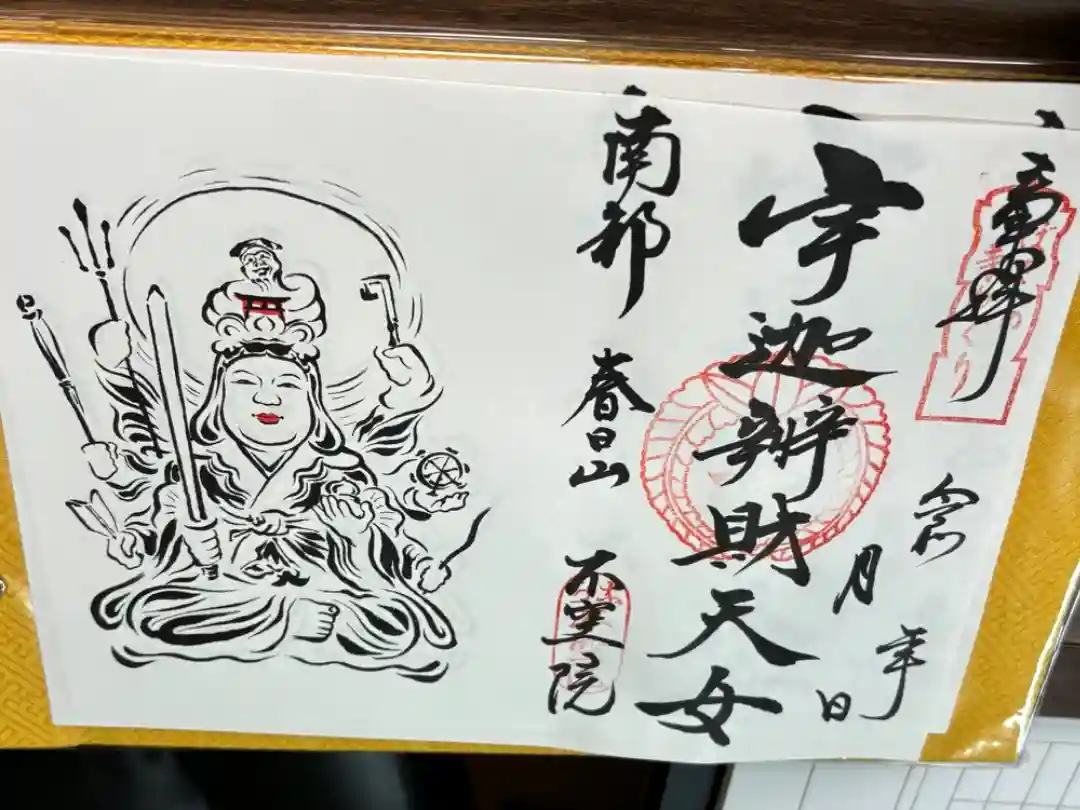 奉拝
令和 年
月 日
宇迦辨財天女
南都 春日山 不空院